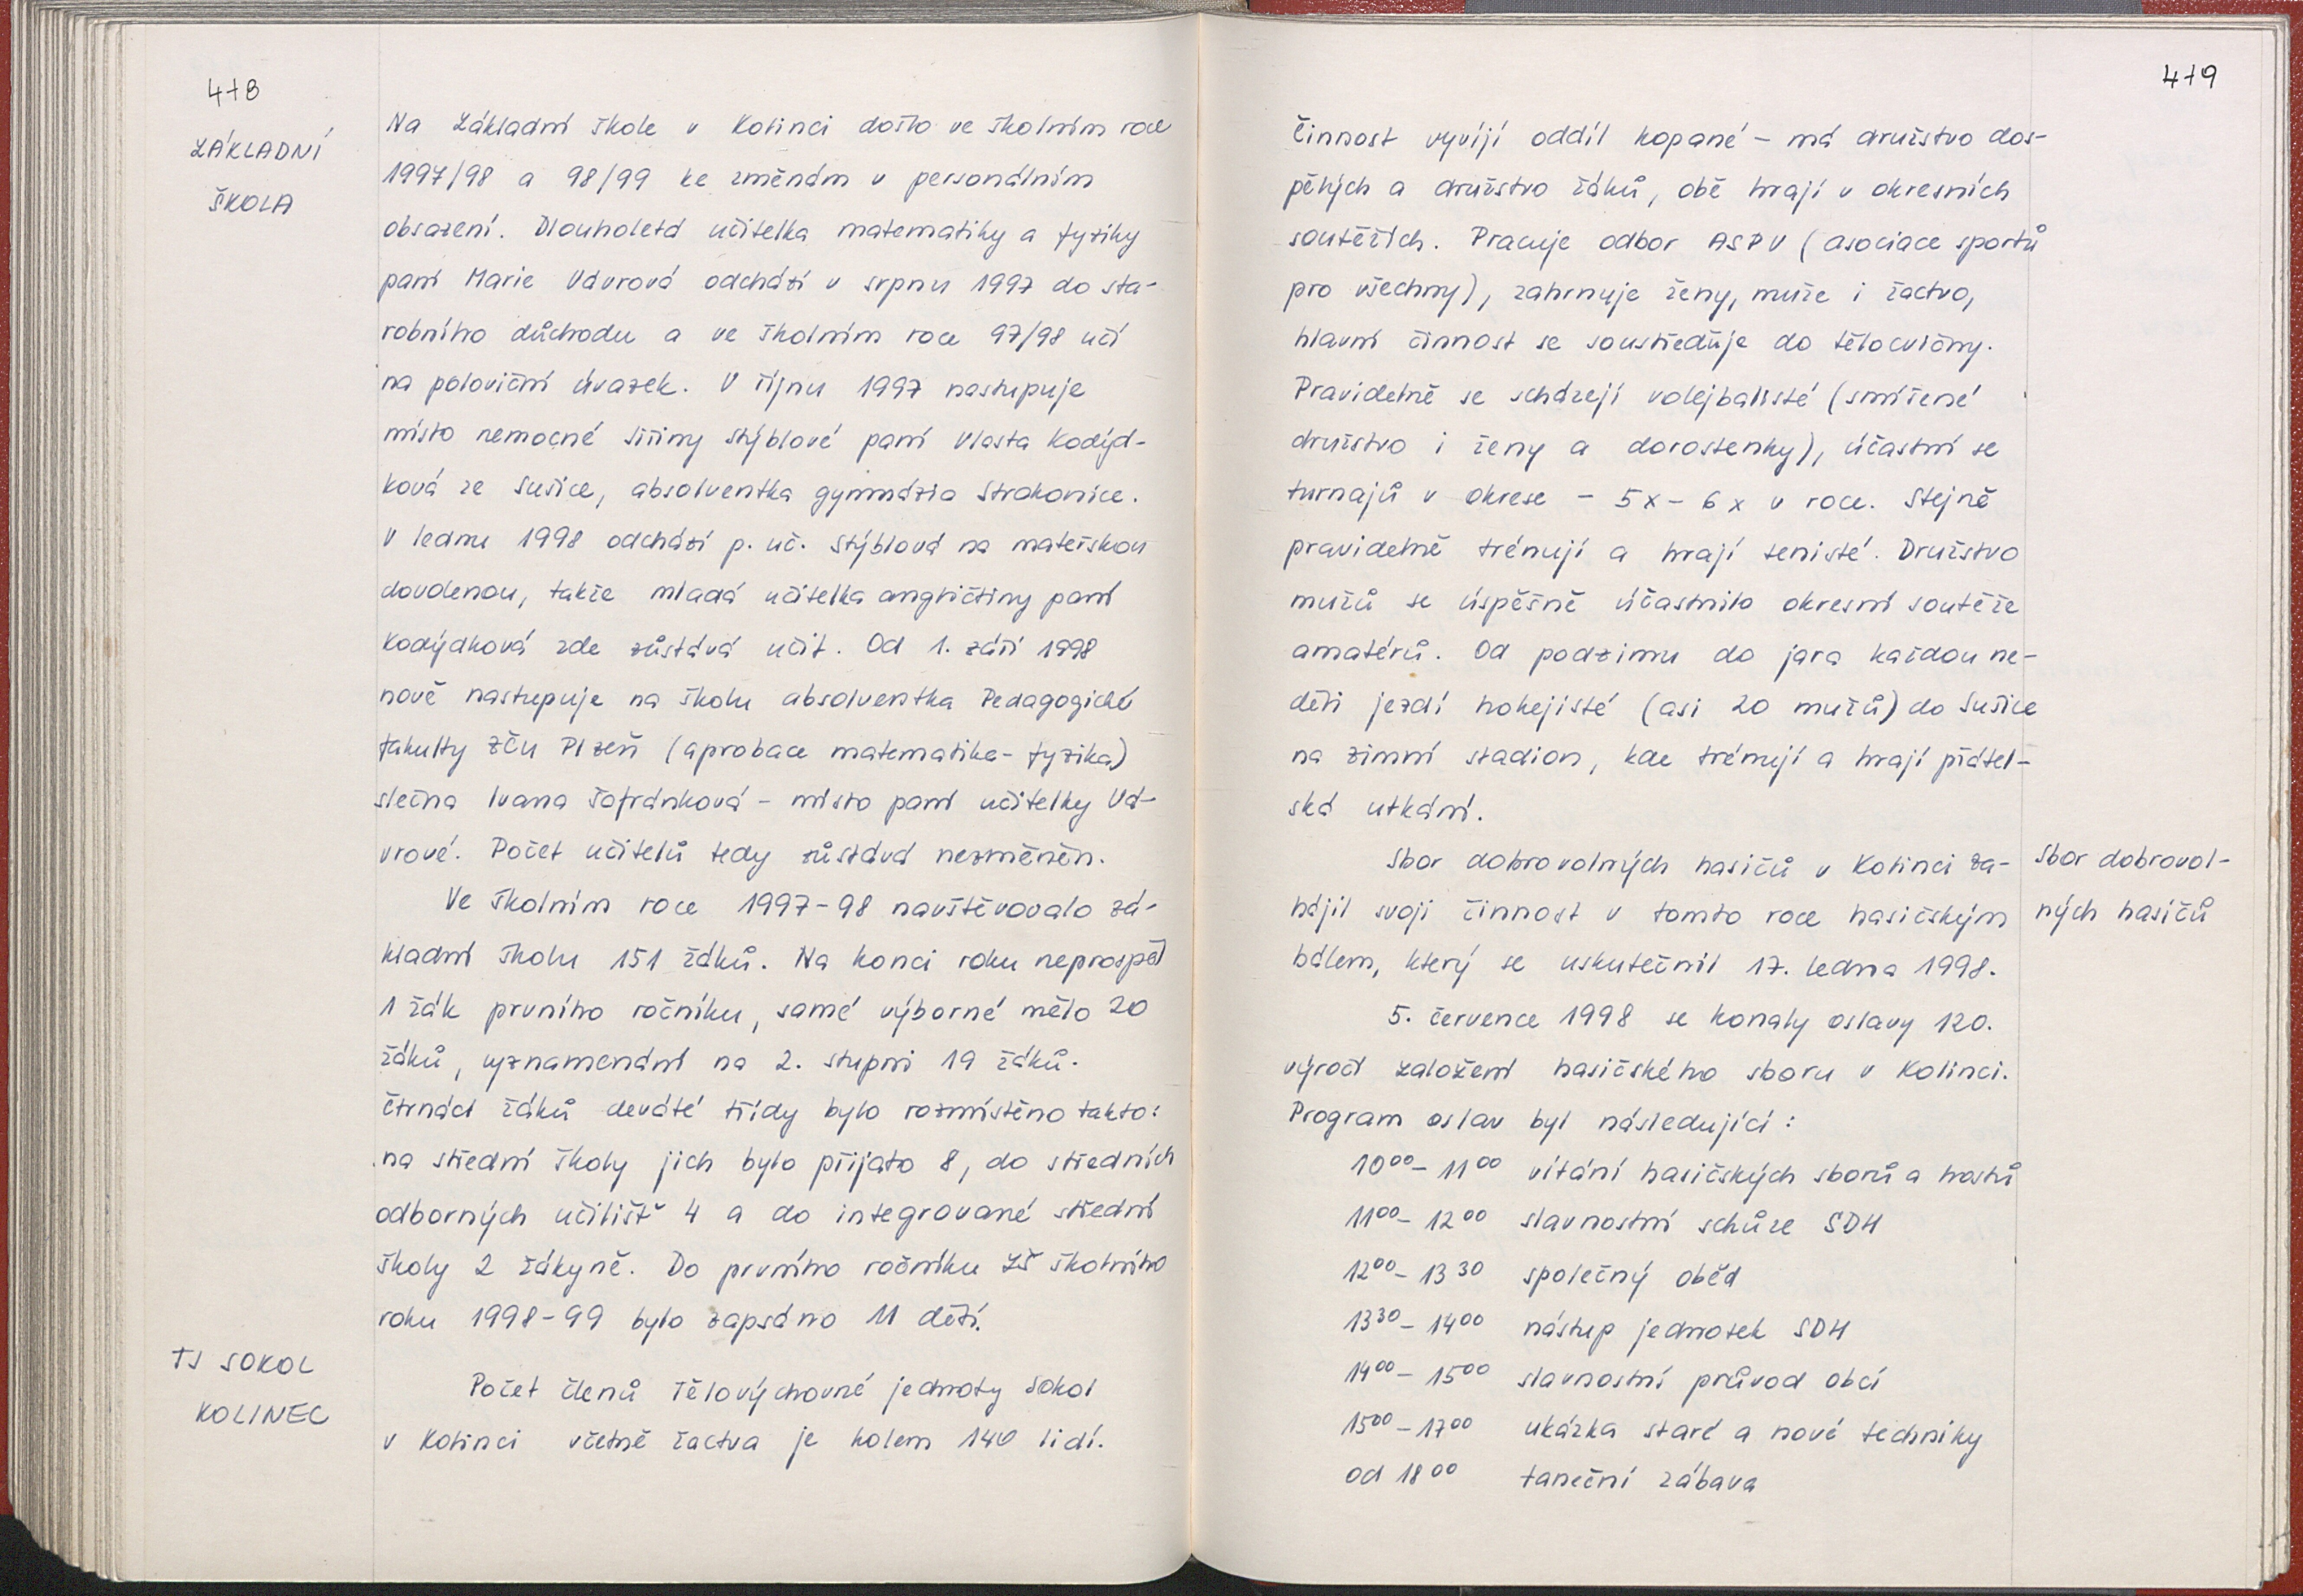 478
ZÁKLADNÍ
ŠKOLA
Na Základní škole v Kolinci došlo ve školním roce
1997/98 a 98/99 ke změnám v personálním
obsazení. Dlouholetá učitelka matematiky a fyziky
paní Marie Vávrová odchází v srpnu 1997 do sta-
robního důchodu a ve školním roce 97/98 učí
na poloviční úvazek. V říjnu 1997 nastupuje
místo nemocné Jiřiny Stýblové paní Vlasta Kodýd-
ková ze Sušice, absolventka gymnázia Strakonice.
V lednu 1998 odchází p. uč. Stýblová na mateřskou
dovolenou, takže mladá učitelka angličtiny paní
Kodýdková zde zůstává učit. Od 1. září 1998
nově nastupuje na školu absolventka Pedagogické
fakulty ZČU Plzeň (aprobace matematika-fyzika)
slečna Ivana Šafránková - místo paní učitelky Vá-
vrové. Počet učitelů tedy zůstává nezměněn.
Ve školním roce 1997-98 navštěvovalo zá-
kladní školu 151 žáků. Na konci roku neprospěl
1 žák prvního ročníku, samé výborné mělo 20
žáků, vyznamenání na 2. stupni 19 žáků.
Čtrnáct žáků deváté třídy bylo rozmístěno takto:
na střední školy jich bylo přijato 8, do středních
odborných učilišť 4 a do integrované střední
školy 2 žákyně. Do prvního ročníku ZŠ školního
roku 1998-99 bylo zapsáno 11 dětí.
TJ SOKOL
KOLINEC
Počet členů Tělovýchovné jednoty Sokol
v Kolinci včetně žactva je kolem 140 lidí.
479
Činnost vyvíjí oddíl kopané - má družstvo dos-
pělých a družstvo žáků, obě hrají v okresních
soutěžích. Pracuje odbor ASPV (asociace sportů
pro všechny), zahrnuje ženy, muže i žactvo,
hlavní činnost se soustřeďuje do tělocvičny.
Pravidelně se scházejí volejbalisté (smíšené
družstvo i ženy a dorostenky), účastní se
turnajů v okrese - 5x - 6x v roce. Stejně
pravidelně trénují a hrají tenisté. Družstvo
mužů se úspěšně účastnilo okresní soutěže
amatérů. Od podzimu do jara každou ne-
děli jezdí hokejisté (asi 20 mužů) do Sušice
na zimní stadion, kde trénují a hrají přátel-
ská utkání.
Sbor dobrovolných hasičů v Kolinci za-
hájil svoji činnost v tomto roce hasičským
bálem, který se uskutečnil 17. ledna 1998.
Sbor dobrovol-
ných hasičů
5. července 1998 se konaly oslavy 120.
výročí založení hasičského sboru v Kolinci.
Program oslav byl následující:
10⁰⁰ - 11⁰⁰ vítání hasičských sborů a hostů
11⁰⁰ - 12⁰⁰ slavnostní schůze SDH
12⁰⁰ - 13³⁰ společný oběd
13³⁰ - 14⁰⁰ nástup jednotek SDH
14⁰⁰ - 15⁰⁰ slavnostní průvod obcí
15⁰⁰ - 17⁰⁰ ukázka staré a nové techniky
od 18⁰⁰ taneční zábava